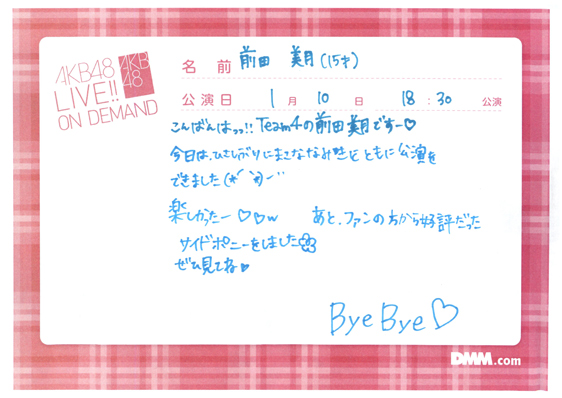 AKB48
LIVE!!
ON DEMAND
AKB
48
名 前 前田 美月 (15才)
公演日 1 月 10 日 18 : 30 公演
こんばんはっ!! Team4の前田美月ですー♡
今日は、ひさしぶりにまこななみ ともに公演を
できました
楽しかったー ♡♡w あと、ファンの方から好評だった
サイドポニーをしました
ぜひ見てね♥
Bye Bye♡
DMM.com